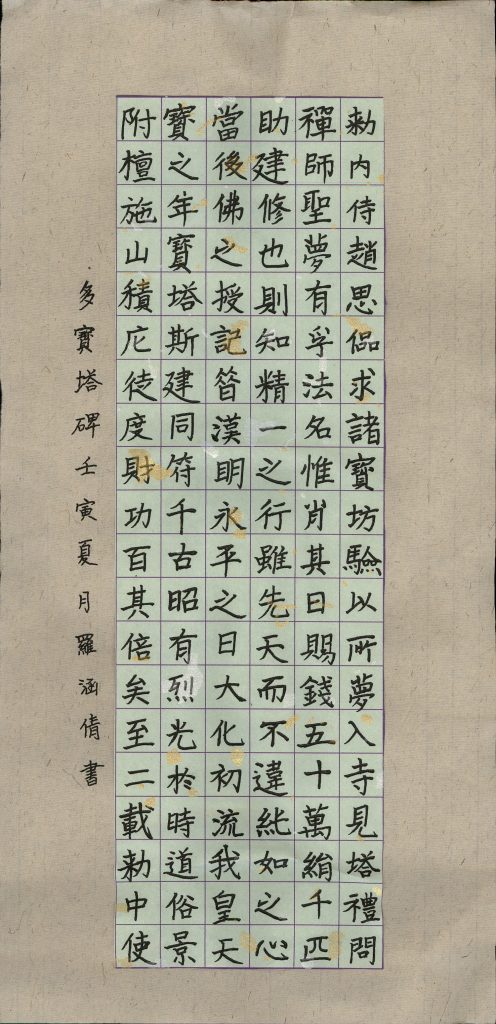 勅内侍趙思侃求諸寶坊驗以所夢入寺見塔禮問
禪師聖夢有孚法名惟肖其日賜錢五十萬絹千匹
助建修也則知精一之行雖先天而不違純如之心
當後佛之授記昔漢明永平之日大化初流我皇天
寶之年寶塔斯建同符千古昭有烈光於時道俗景
附檀施山積庀徒度財功百其倍矣至二載勅中使
多寶塔碑壬寅夏月羅涵倩書